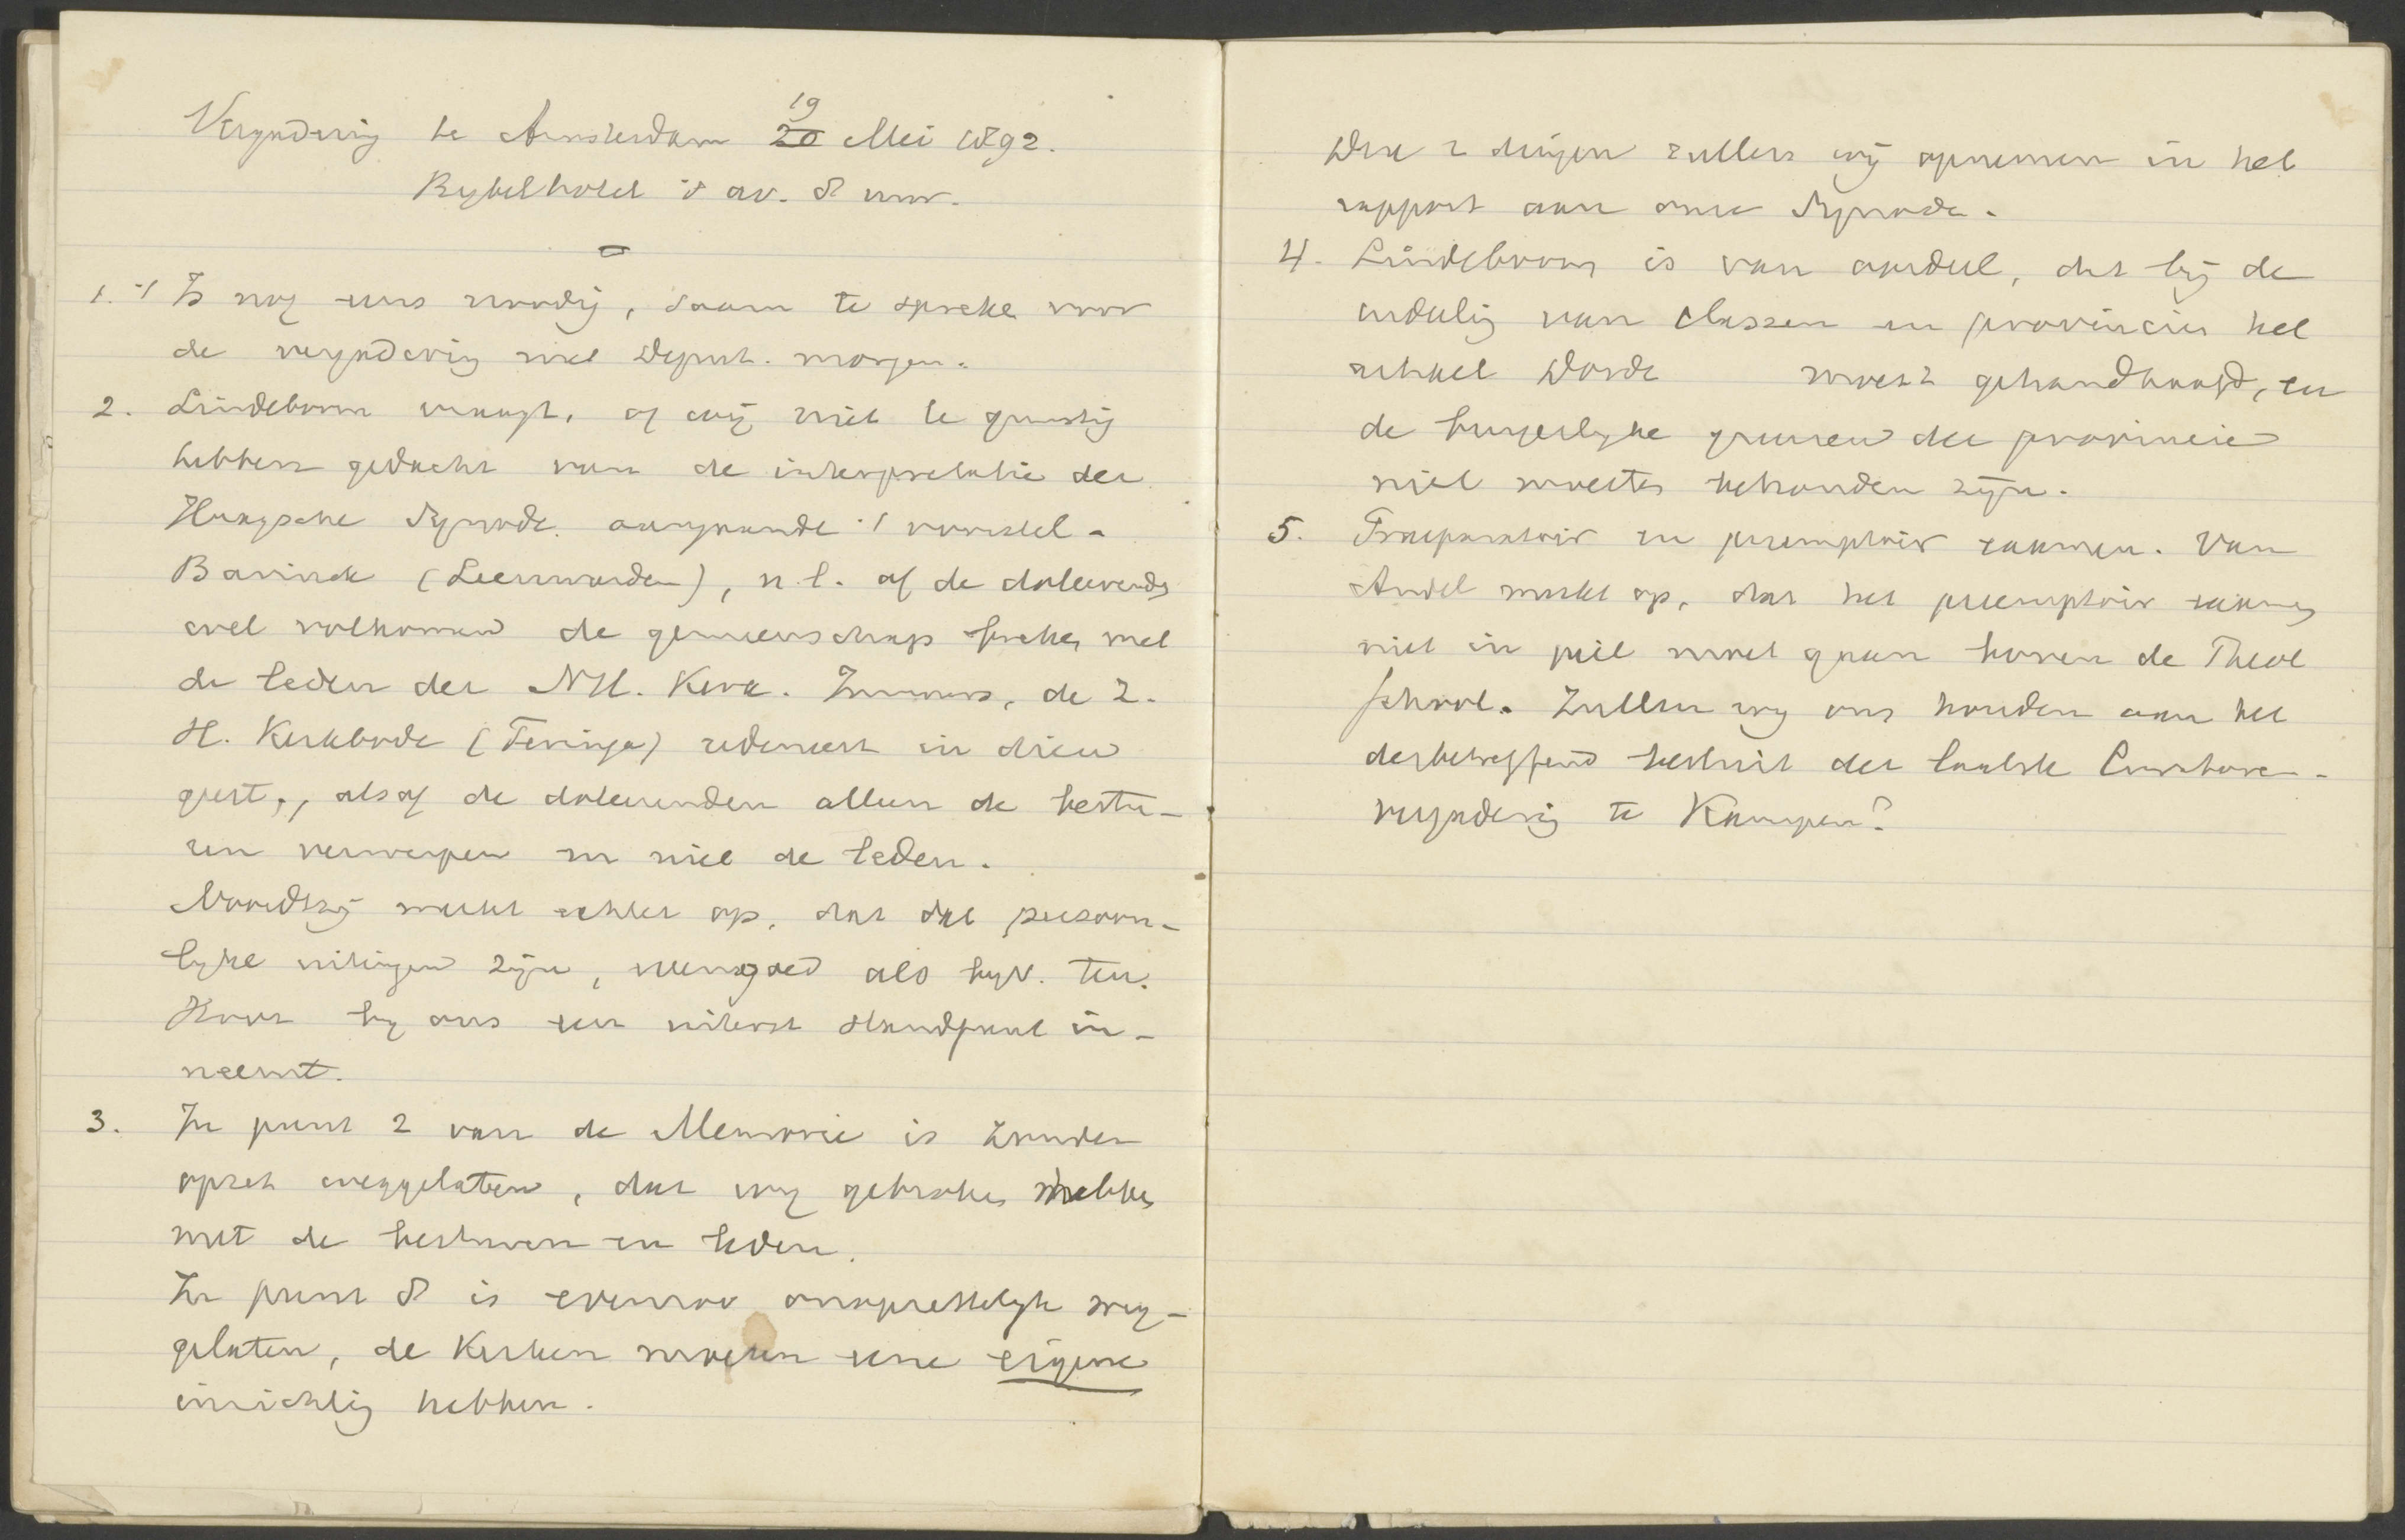 Vergadering te Amsterdam 19
20 Mei 1892.
Bybelhotel 's av. 8 uur.
1. 't Is nog eens noodig, saam te spreken voor
de vergadering met Deput. morgen.
2. Lindeboom vraagt, of wij niet te gunstig
hebben gedacht van de interpretatie der
Haagsche Synode aangaande 't voorstel-
Bavinck (Leeuwarden), n.l. of de doleerenden
wel volkomen de gemeenschap breken met
de leden der NH. Kerk. Immers, de Z.
H. Kerkbode (Feringa) redeneert in dien
geest, alsof de doleerenden alleen de bestu-
ren verwerpen en niet de leden.
Noordtzij merkt echter op, dat dat persoon-
lyke uitingen zijn, evengoed als byv. ten
Hoor by ons een uiterst standpunt in-
neemt.
3. In punt 2 van de Memorie is zonder
opzet weggelaten, dat wy gebroken hebben
met de besturen en leden.
In punt 8 is evenzoo onopzettelyk weg-
gelaten, de Kerken moeten eene eigene
inrichting hebben.
Deze 2 dingen zullen wij opnemen in het
rapport aan onze Synode.
4. Lindeboom is van oordeel, dat bij de
indeeling van classen en provinciën het
getal Dordt moest gehandhaafd, en
de burgerlyke grenzen der provincie
niet moesten behouden zijn.
5. Praeparatoir en peremptoir examen. Van
Andel merkt op, dat het peremptoir examen
niet in peil moet gaan boven de Theol
school. Zullen wy ons houden aan het
desbetreffend besluit der laatste Curatoren-
vergadering te Kampen?